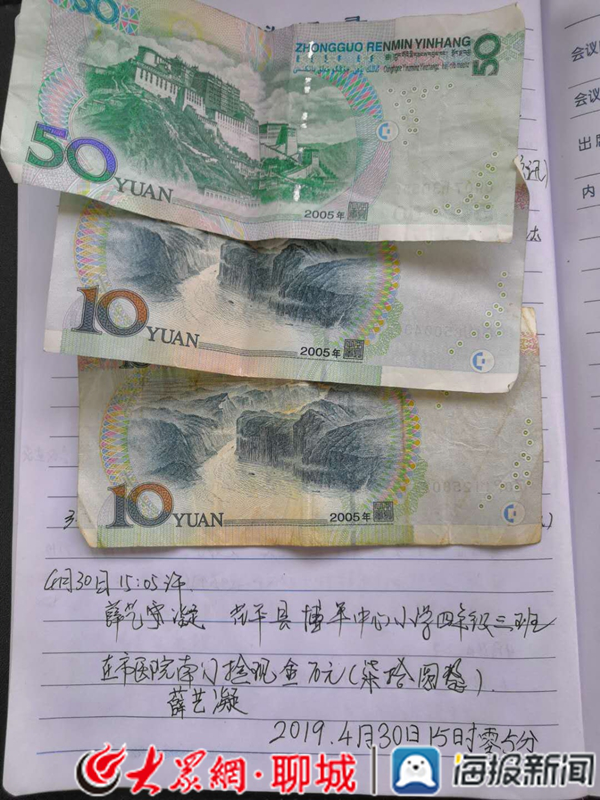 ZHONGGUO RENMIN YINHANG
50
50
50
YUAN
2005年
10
YUAN
2005年
10
YUAN
2005年
会议
会议
出席
内
4月30日15:05许.
薛艺凝 茌平县博平中心小学四年级三班
在市医院南门捡现金70元(柒拾圆整).
薛艺凝
2019.4月30日15时零5分
大眾網·聊城
海报新闻